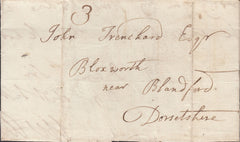 3
John Trenchard Esqr
Bloxworth
near Blandford
Dorsetshire